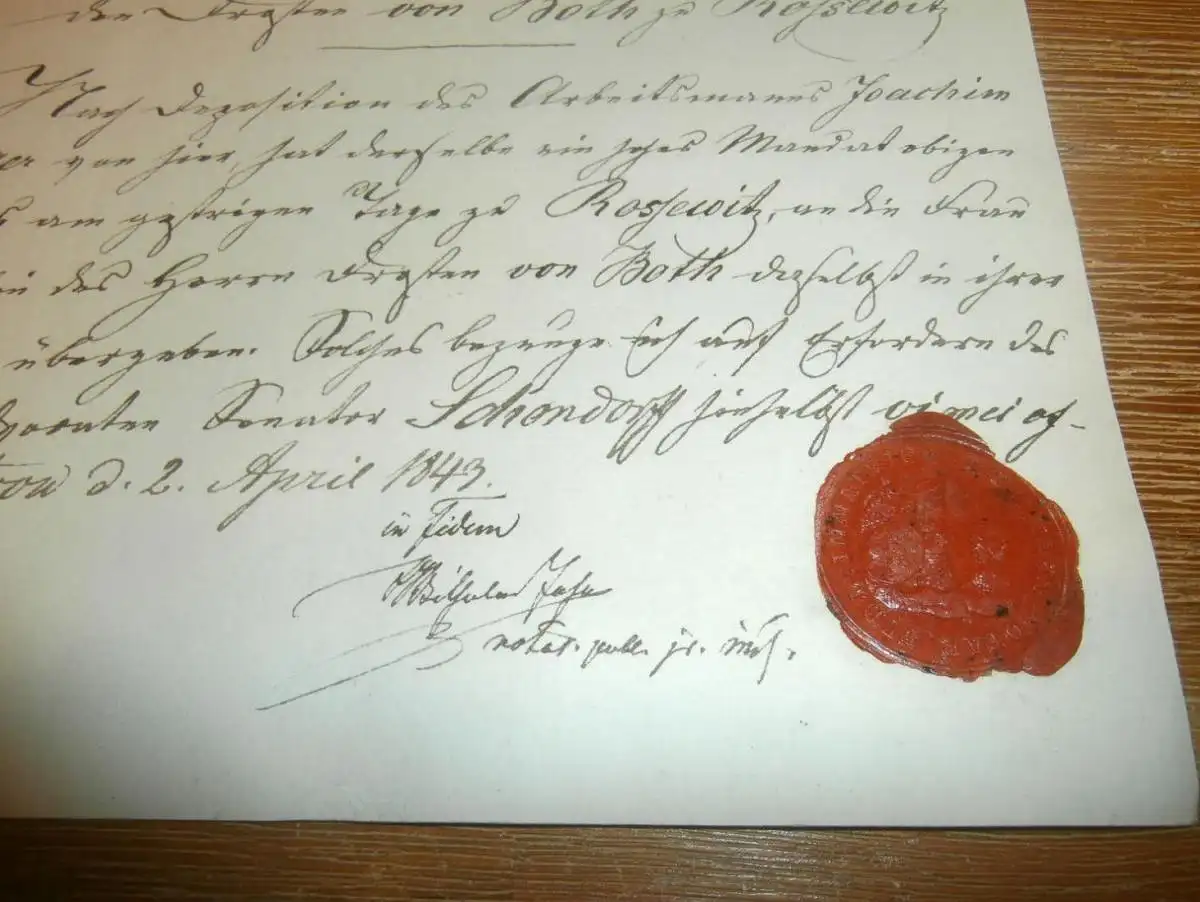 den Drosten von Both zu Rossewitz
Nach Deposition des Arbeitsmannes Joachim
von hier, hat derselbe ein hohes Mandat obigen
am gestrigen Tage zu Rossewitz, an die Frau
des Herrn Drosten von Both daselbst in ihrer
übergeben. Solches bezeuge ich auf Erfordern des
Senator Schondorff hieselbst vi mei of-
d. 2. April 1843.
in fidem
Wilhelm
notar. publ.